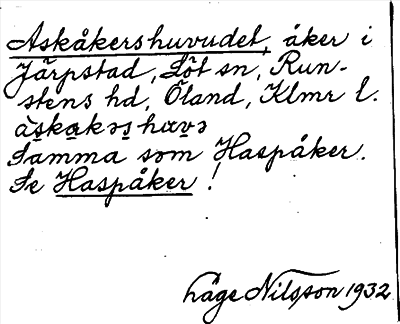 Askåkershuvudet, åker i
Järpstad, Löt sn, Run-
stens hd, Öland, Klmr l.
àskakəs̩hʉvə
Samma som Haspåker.
Se Haspåker!
Låge Nilsson 1932